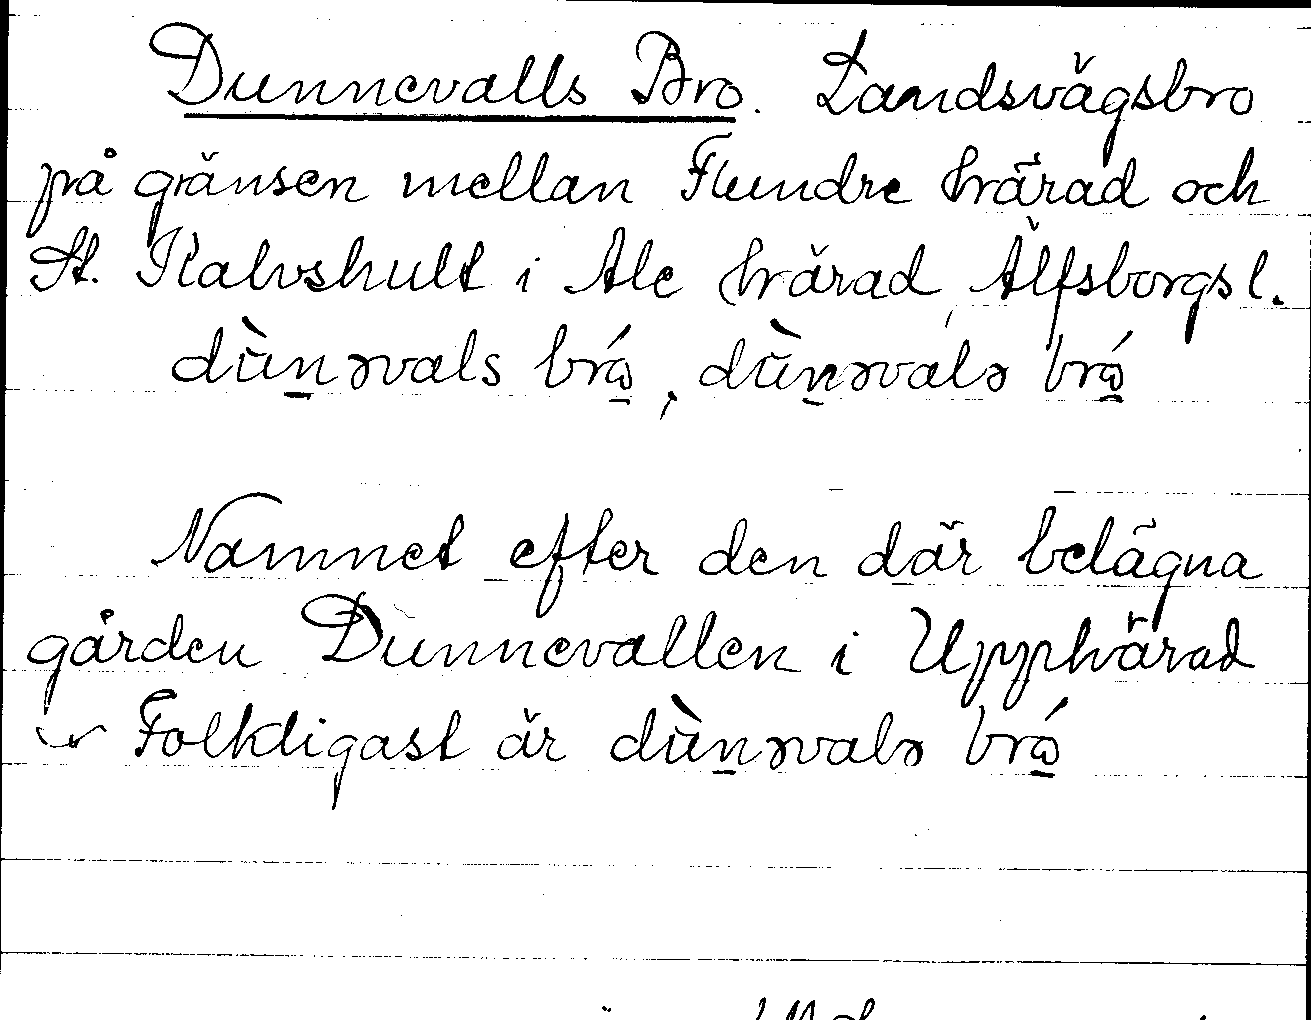 Dunnevalls Bro. Landsvägsbro
på gränsen mellan Flundre härad och
St. Kalvshult i Ale härad, Älfsborgs l.
dùn̲əvals brώ̲, dùn̲əvalə brώ̲
Namnet efter den där belägna
gården Dunnevallen i Upphärad
Folkligast är dùn̲əvalə brώ̲